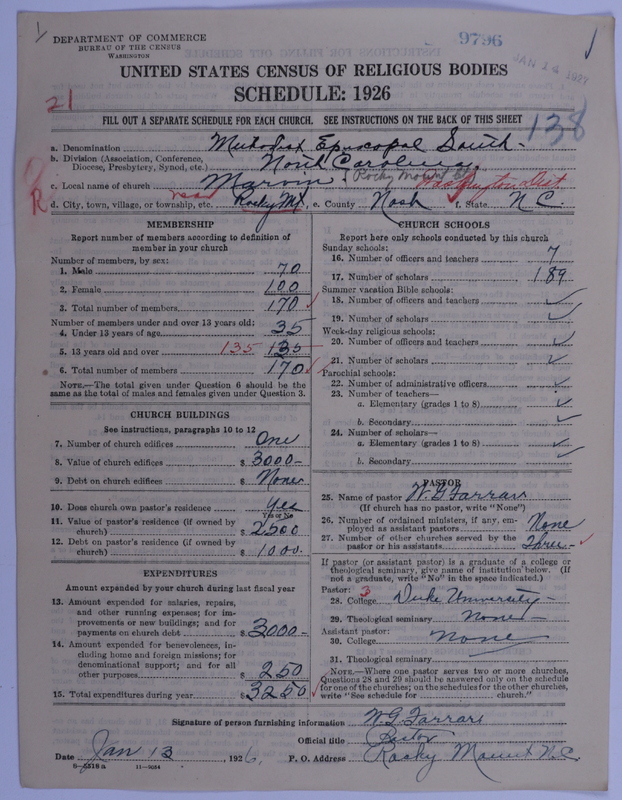 DEPARTMENT OF COMMERCE
BUREAU OF THE CENSUS
WASHINGTON
9796
JAN 14 1927
UNITED STATES CENSUS OF RELIGIOUS BODIES
SCHEDULE: 1926
21
FILL OUT A SEPARATE SCHEDULE FOR EACH CHURCH. SEE INSTRUCTIONS ON THE BACK OF THIS SHEET
138
a. Denomination Methodist Episcopal South-
b. Division (Association, Conference, Diocese, Presbytery, Synod, etc.) North Carolina
c. Local name of church Marvin Rocky Mount Washington Dist.
R
d. City, town, village, or township, etc. near Rocky Mt. e. County Nash f. State N C.
MEMBERSHIP
Report number of members according to definition of
member in your church
Number of members, by sex:
1. Male 70
2. Female 100
3. Total number of members 170
Number of members under and over 13 years old:
4. Under 13 years of age 35
5. 13 years old and over 135 135
6. Total number of members 170
NOTE.—The total given under Question 6 should be the
same as the total of males and females given under Question 3.
CHURCH BUILDINGS
See instructions, paragraphs 10 to 12
7. Number of church edifices One
8. Value of church edifices $ 3000-
9. Debt on church edifices $ None
10. Does church own pastor's residence? Yes
Yes or No
11. Value of pastor's residence (if owned by
church) $ 2500
12. Debt on pastor's residence (if owned by
church) $ 1000.
EXPENDITURES
Amount expended by your church during last fiscal year
13. Amount expended for salaries, repairs,
and other running expenses; for im-
provements or new buildings; and for
payments on church debt $ 3000-
14. Amount expended for benevolences, in-
cluding home and foreign missions; for
denominational support; and for all
other purposes $ 250
15. Total expenditures during year $ 3250
CHURCH SCHOOLS
Report here only schools conducted by this church
Sunday schools:
16. Number of officers and teachers 7
17. Number of scholars 189
Summer vacation Bible schools:
18. Number of officers and teachers
19. Number of scholars
Week-day religious schools:
20. Number of officers and teachers
21. Number of scholars
Parochial schools:
22. Number of administrative officers
23. Number of teachers—
a. Elementary (grades 1 to 8)
b. Secondary
24. Number of scholars—
a. Elementary (grades 1 to 8)
b. Secondary
PASTOR
25. Name of pastor W. G. Farrar
(If church has no pastor, write "None")
26. Number of ordained ministers, if any, em-
ployed as assistant pastors None
27. Number of other churches served by the
pastor or his assistants Three-
If pastor (or assistant pastor) is a graduate of a college or
theological seminary, give name of institution below. (If
not a graduate, write "No" in the space indicated.)
Pastor: 3
28. College Duke University-
29. Theological seminary None-
Assistant pastor:
30. College None
31. Theological seminary
NOTE.—Where one pastor serves two or more churches,
Questions 28 and 29 should be answered only on the schedule
for one of the churches; on the schedules for the other churches,
write "See schedule for church."
Signature of person furnishing information W. G. Farrar
Official title Pastor
Date Jan 13, 1926. P. O. Address Rocky Mount N.C.
8—5518 a 11—9054